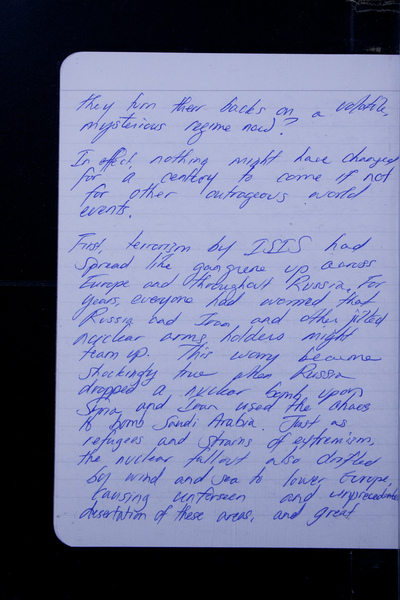 they turn their backs on a volatile,
mysterious regime now?
In effect, nothing might have changed
for a century to come if not
for other outrageous world
events.
First, terrorism by ISIS had
spread like gangrene up across
Europe and throughout Russia. For
years, everyone had worried that
Russia and Iran, and other jilted
nuclear arms holders might
team up. This worry became
shockingly true when Russia
dropped a nuclear bomb upon
Syria and Iran used the chaos
to bomb Saudi Arabia. Just as
refugees and strains of extremism,
the nuclear fallout also drifted
by wind and sea to lower Europe,
causing unforseen and unprecedented
desertation of these areas, and great